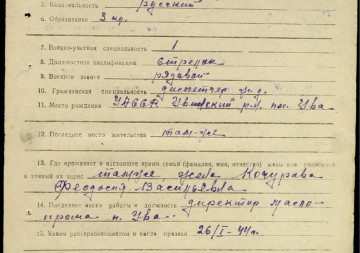 5. Национальность русский
6. Образование 3 кл.
7. Военно-учетная специальность 1
8. Должностная квалификация стрелок
9. Военное звание рядовой
10. Гражданская специальность диспетчер ж.д.
11. Место рождения УАССР Увинский р-н, пос. Ува
12. Последнее место жительства там-же
13. Где проживает в настоящее время семья (фамилия, имя, отчество) жены или родителей
и точный их адрес там же, жена Кочурова
Феодосия Васильевна
14. Последнее место работы и должность директор масло-
прома п. Ува.
15. Каким райвоенкоматом и когда призван 26/I-44г.